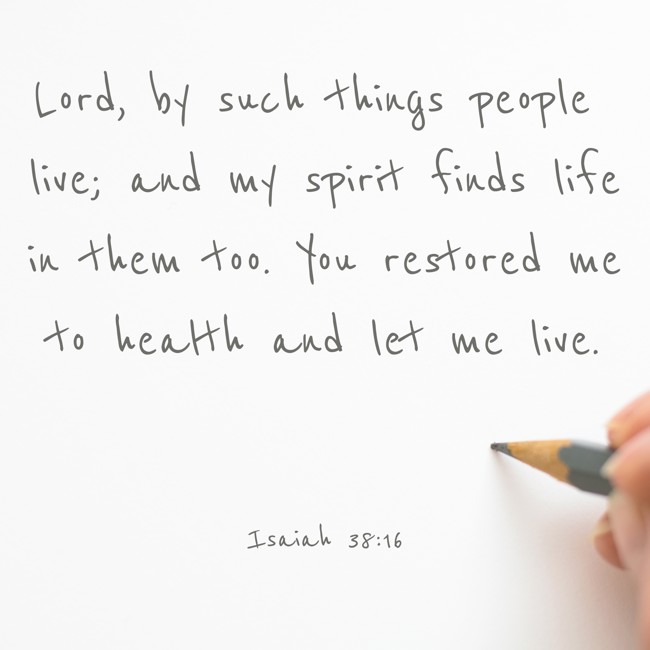 Lord, by such things people
live; and my spirit finds life
in them too. You restored me
to health and let me live.
Isaiah 38:16